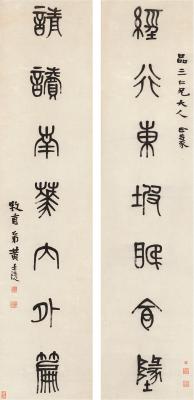 經行東坡眠食墬
品三仁兄大人正篆
請讀南華內外篇
牧甫弟黃士陵